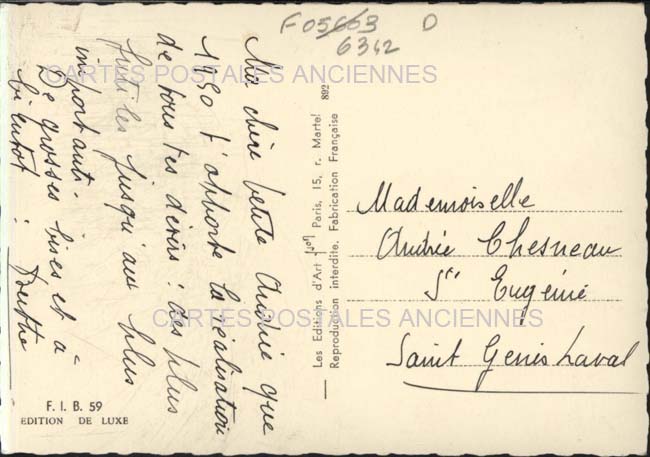 F 05663 D
6342
Ma chère petite Andrée que
1950 t'apporte la réalisation
de tous tes désirs : des plus
futiles jusqu'aux plus
importants.
De grosses bises et à
bientôt :
Berthe
CARTES POSTALES ANCIENNES
CARTES POSTALES ANCIENNES
892
Les Editions d'Art Paris, 15, r. Martel
Reproduction interdite. Fabrication Française
Mademoiselle
Andrée Chesneau
Ste Eugénie
Saint Genis Laval
F. I. B. 59
EDITION DE LUXE